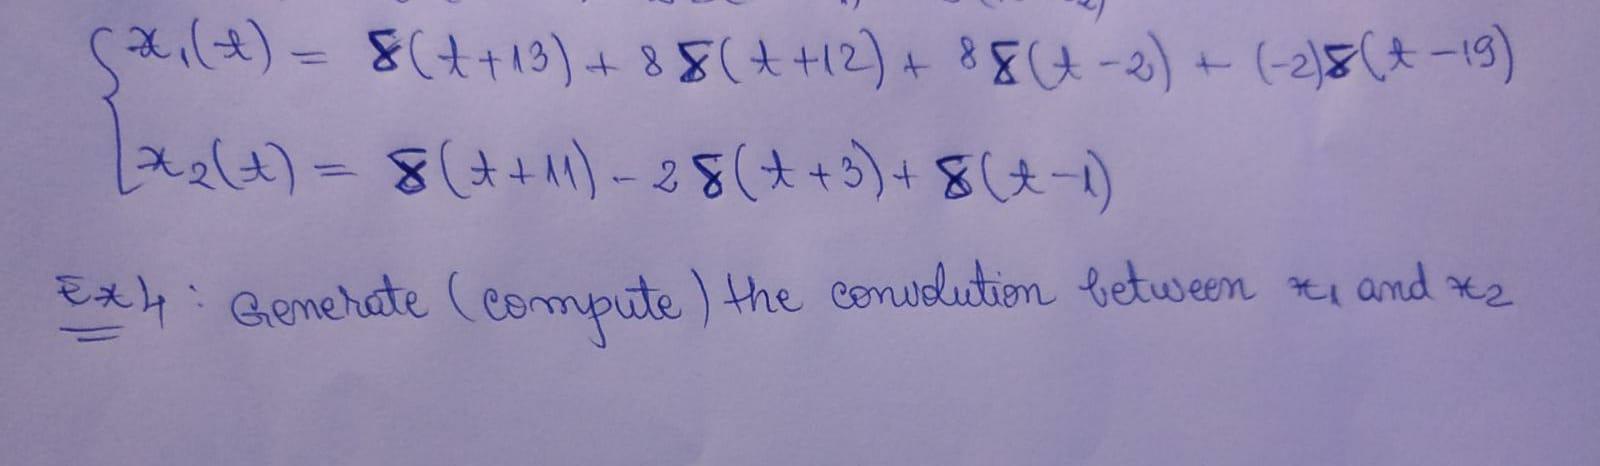 x₁(t) = δ(t+13) + 8 δ(t+12) + 8 δ(t-2) + (-2)δ(t-19)
x₂(t) = δ(t+11) - 2 δ(t+3) + δ(t-1)
Ex4: Generate (compute) the convolution between x₁ and x₂